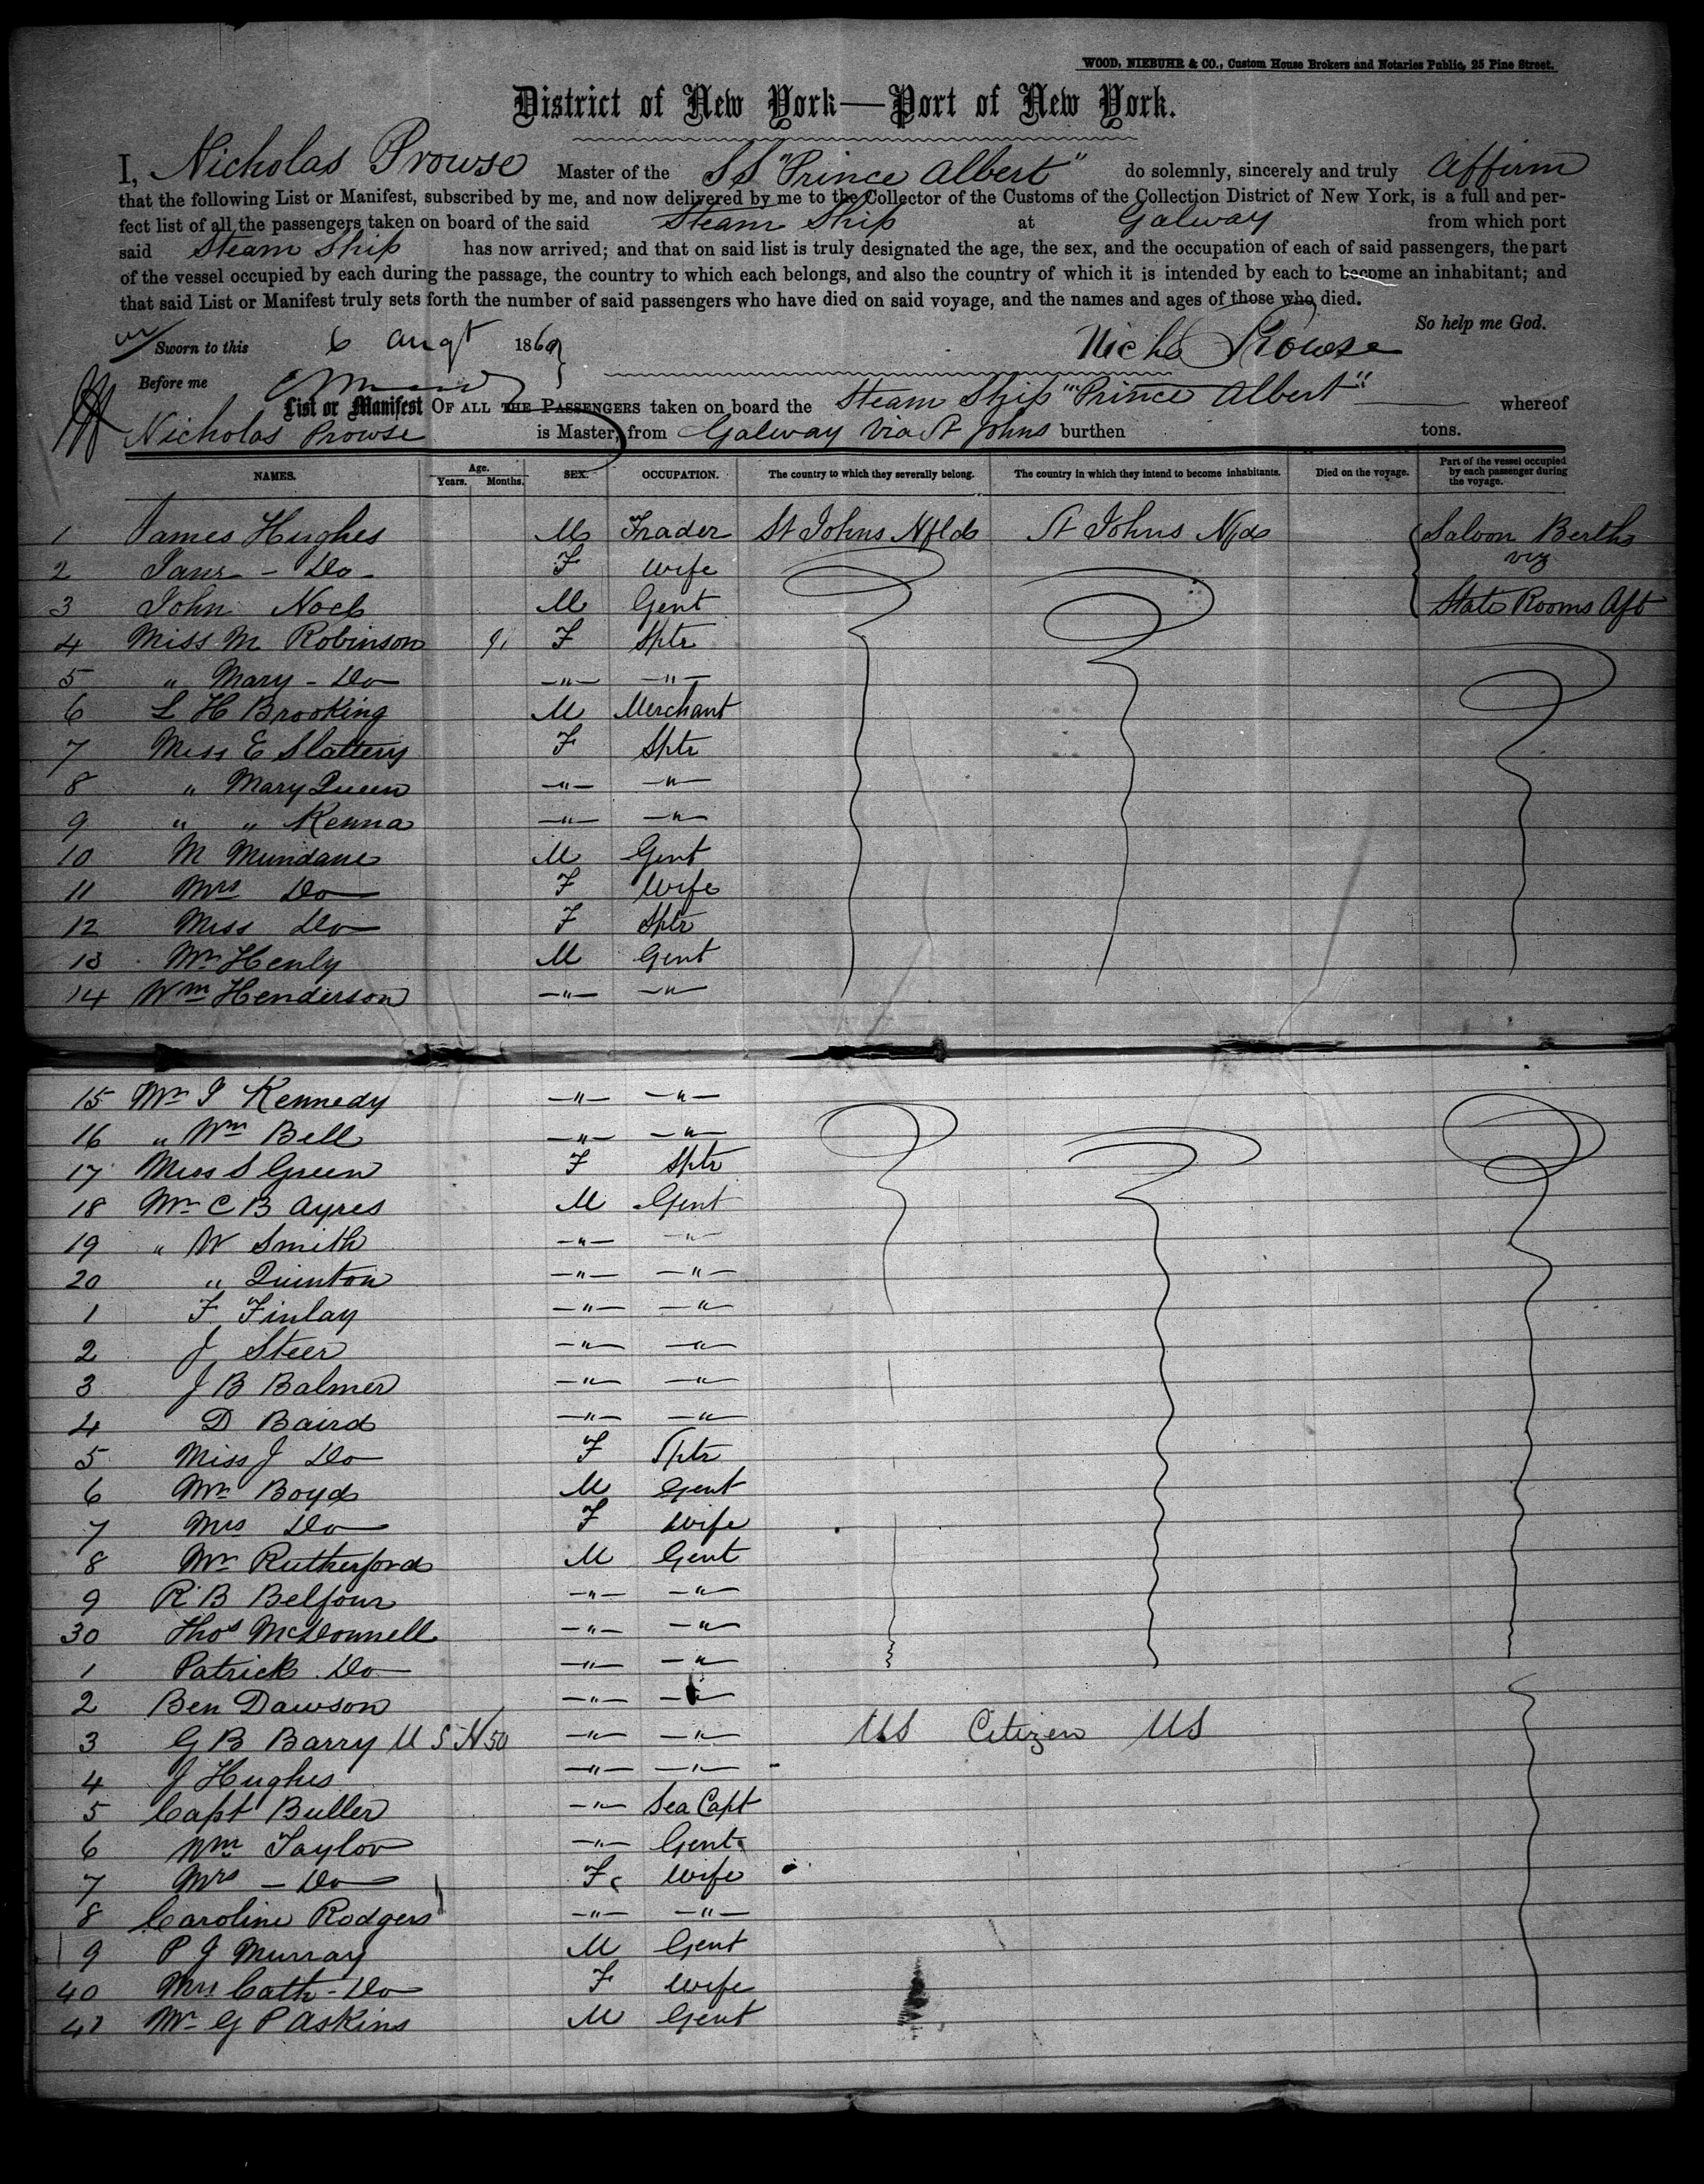 WOOD, NIEBUHR & CO., Custom House Brokers and Notaries Public, 25 Pine Street.
District of New York—Port of New York.
I, Nicholas Prowse Master of the SS "Prince Albert" do solemnly, sincerely and truly affirm
that the following List or Manifest, subscribed by me, and now delivered by me to the Collector of the Customs of the Collection District of New York, is a full and per-
fect list of all the passengers taken on board of the said Steam Ship at Galway from which port
said Steam Ship has now arrived; and that on said list is truly designated the age, the sex, and the occupation of each of said passengers, the part
of the vessel occupied by each during the passage, the country to which each belongs, and also the country of which it is intended by each to become an inhabitant; and
that said List or Manifest truly sets forth the number of said passengers who have died on said voyage, and the names and ages of those who died.
So help me God.
Sworn to this 6 augt 1860 Nichs Prowse
Before me
List or Manifest OF ALL THE PASSENGERS taken on board the Steam Ship "Prince Albert" whereof
Nicholas Prowse is Master, from Galway via St Johns burthen tons.
NAMES. Age. Years. Months. SEX. OCCUPATION. The country to which they severally belong. The country in which they intend to become inhabitants. Died on the voyage. Part of the vessel occupied by each passenger during the voyage.
1 James Hughes M Trader St Johns Nfld St Johns Nfd Saloon Berths
2 Jane - Do - F Wife viz
3 John Noel M Gent State Rooms Aft
4 Miss M Robinson F Sptr
5 " Mary - Do — " — — " —
6 L H Brooking M Merchant
7 Miss E Slattery F Sptr
8 " Mary Queen — " — — " —
9 " " Kenna — " — — " —
10 M Mundane M Gent
11 Mrs Do F Wife
12 Miss Do F Sptr
13 Mr Henly M Gent
14 Wm Henderson — " — — " —
15 Mr J Kennedy — " — — " —
16 " Wm Bell — " — — " —
17 Miss S Green F Sptr
18 Mr C B Ayres M Gent
19 " W Smith — " — — " —
20 " Quinton — " — — " —
1 F Finlay — " — — " —
2 J Steer — " — — " —
3 J B Balmer — " — — " —
4 D Baird — " — — " —
5 Miss J Do F Sptr
6 Mr Boyd M Gent
7 Mrs Do F Wife
8 Mr Rutherford M Gent
9 R B Belfour — " — — " —
30 Thos McDonnell — " — — " —
1 Patrick Do — " — — " —
2 Ben Dawson — " — — " —
3 G B Barry U S N 50 — " — — " — US Citizen US
4 J Hughes — " — — " —
5 Capt Buller — " — Sea Capt
6 Wm Taylor — " — Gent
7 Mrs - Do F Wife
8 Caroline Rodgers — " — — " —
9 P J Murray M Gent
40 Mrs Cath - Do F Wife
41 Mr G P Askins M Gent